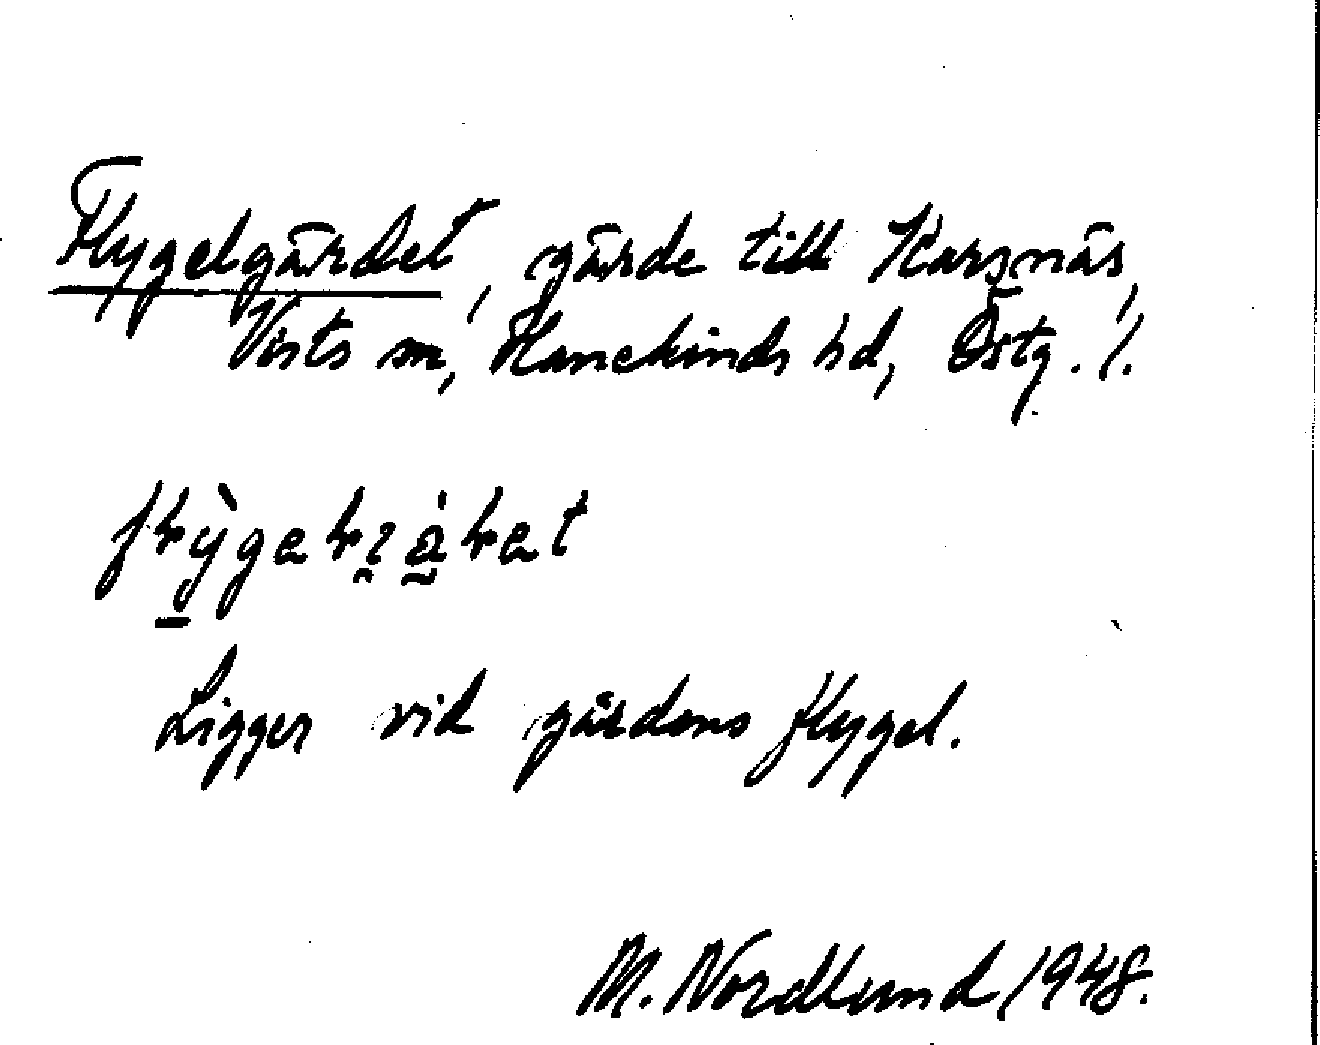 Flygelgärdet, gärde till Karsnäs,
Vists sn, Hanekinds hd, Östg. l.
Ligger vid gårdens flygel.
M. Nordlund 1948.